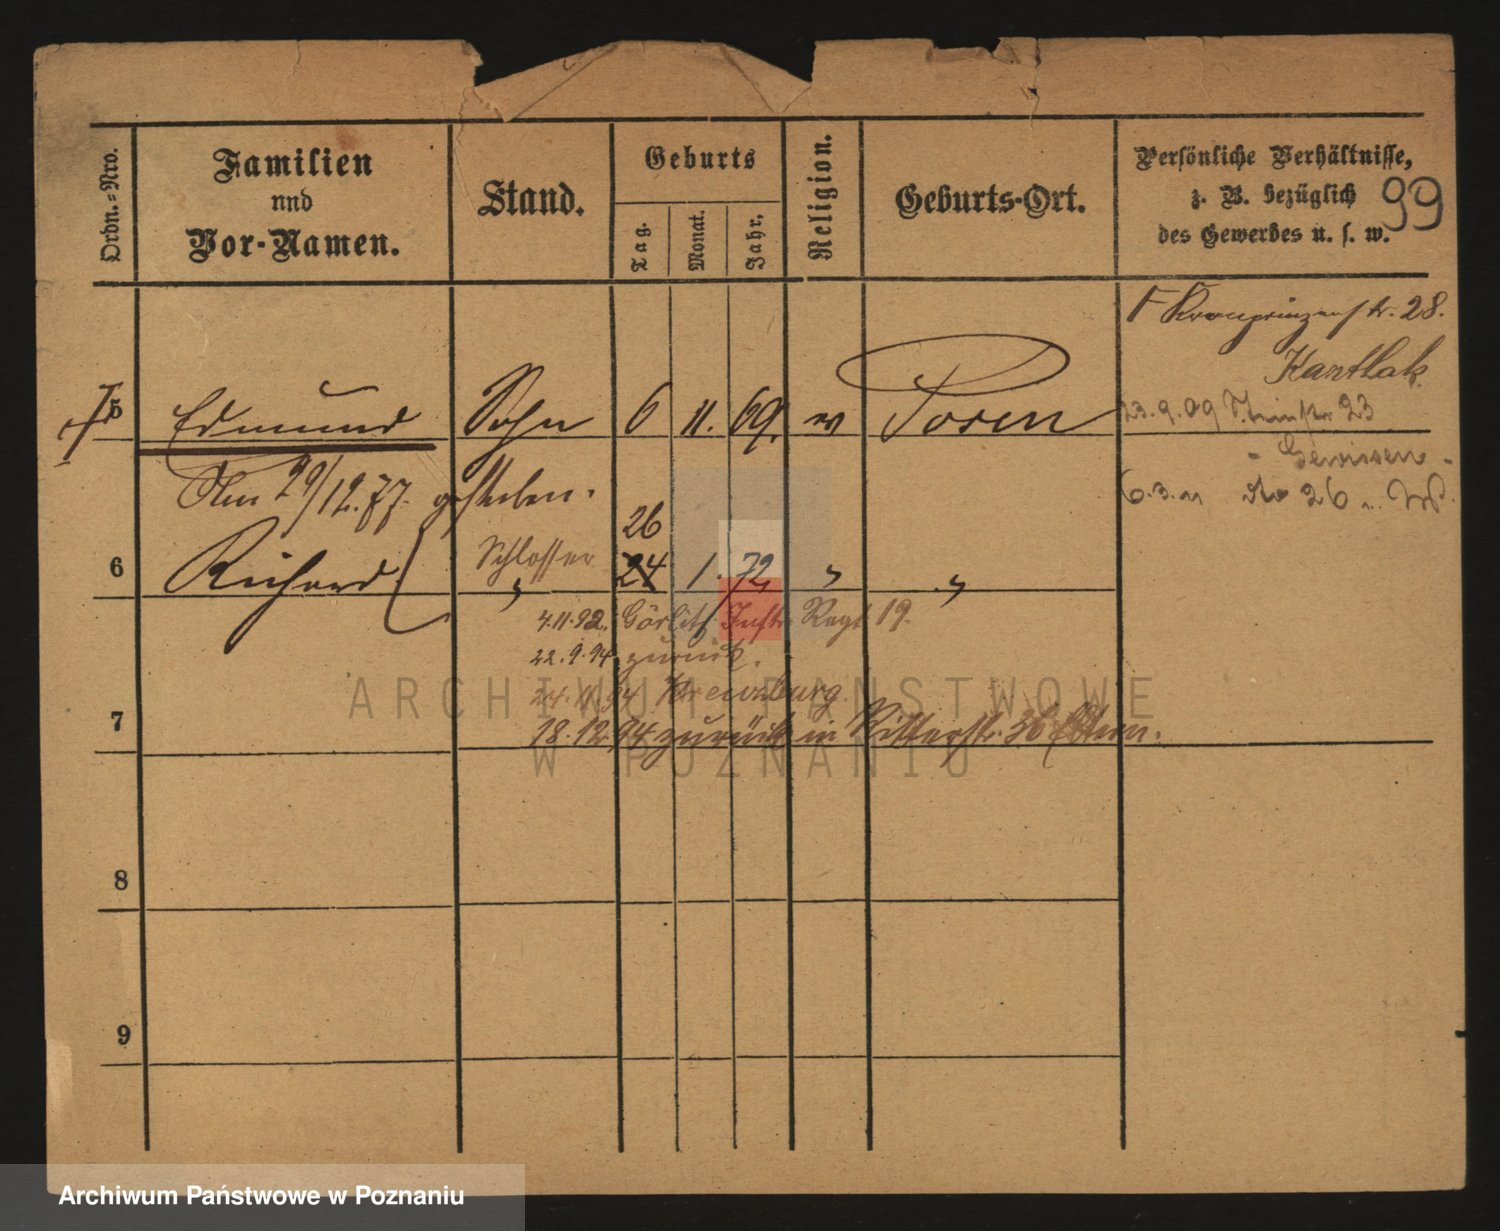 Ordn.-Nro.
Familien
und
Vor-Namen.
Stand.
Geburts
Tag.
Monat.
Jahr.
Religion.
Geburts-Ort.
Persönliche Verhältnisse,
z. B. bezüglich
des Gewerbes u. s. w.
99
F Kronprinzenstr. 28.
Kantlak
5 Edmund Sohn 6 11. 69. Posen
23.9.09 Steinstr 23
- Gewissen -
Am 29/12.77. gestorben.
6.3.11 dto 26
26
6 Richard Schlosser 24 1. 72 " "
4.11.92. Görlitz. Inftr. Regt 19.
22.9.94 zurück.
24.11.94 Kreuzburg
7 18.12.94 zurück in Ritterstr. 36 Eltern.
8
9
ARCHIWUM PAŃSTWOWE
W POZNANIU
Archiwum Państwowe w Poznaniu